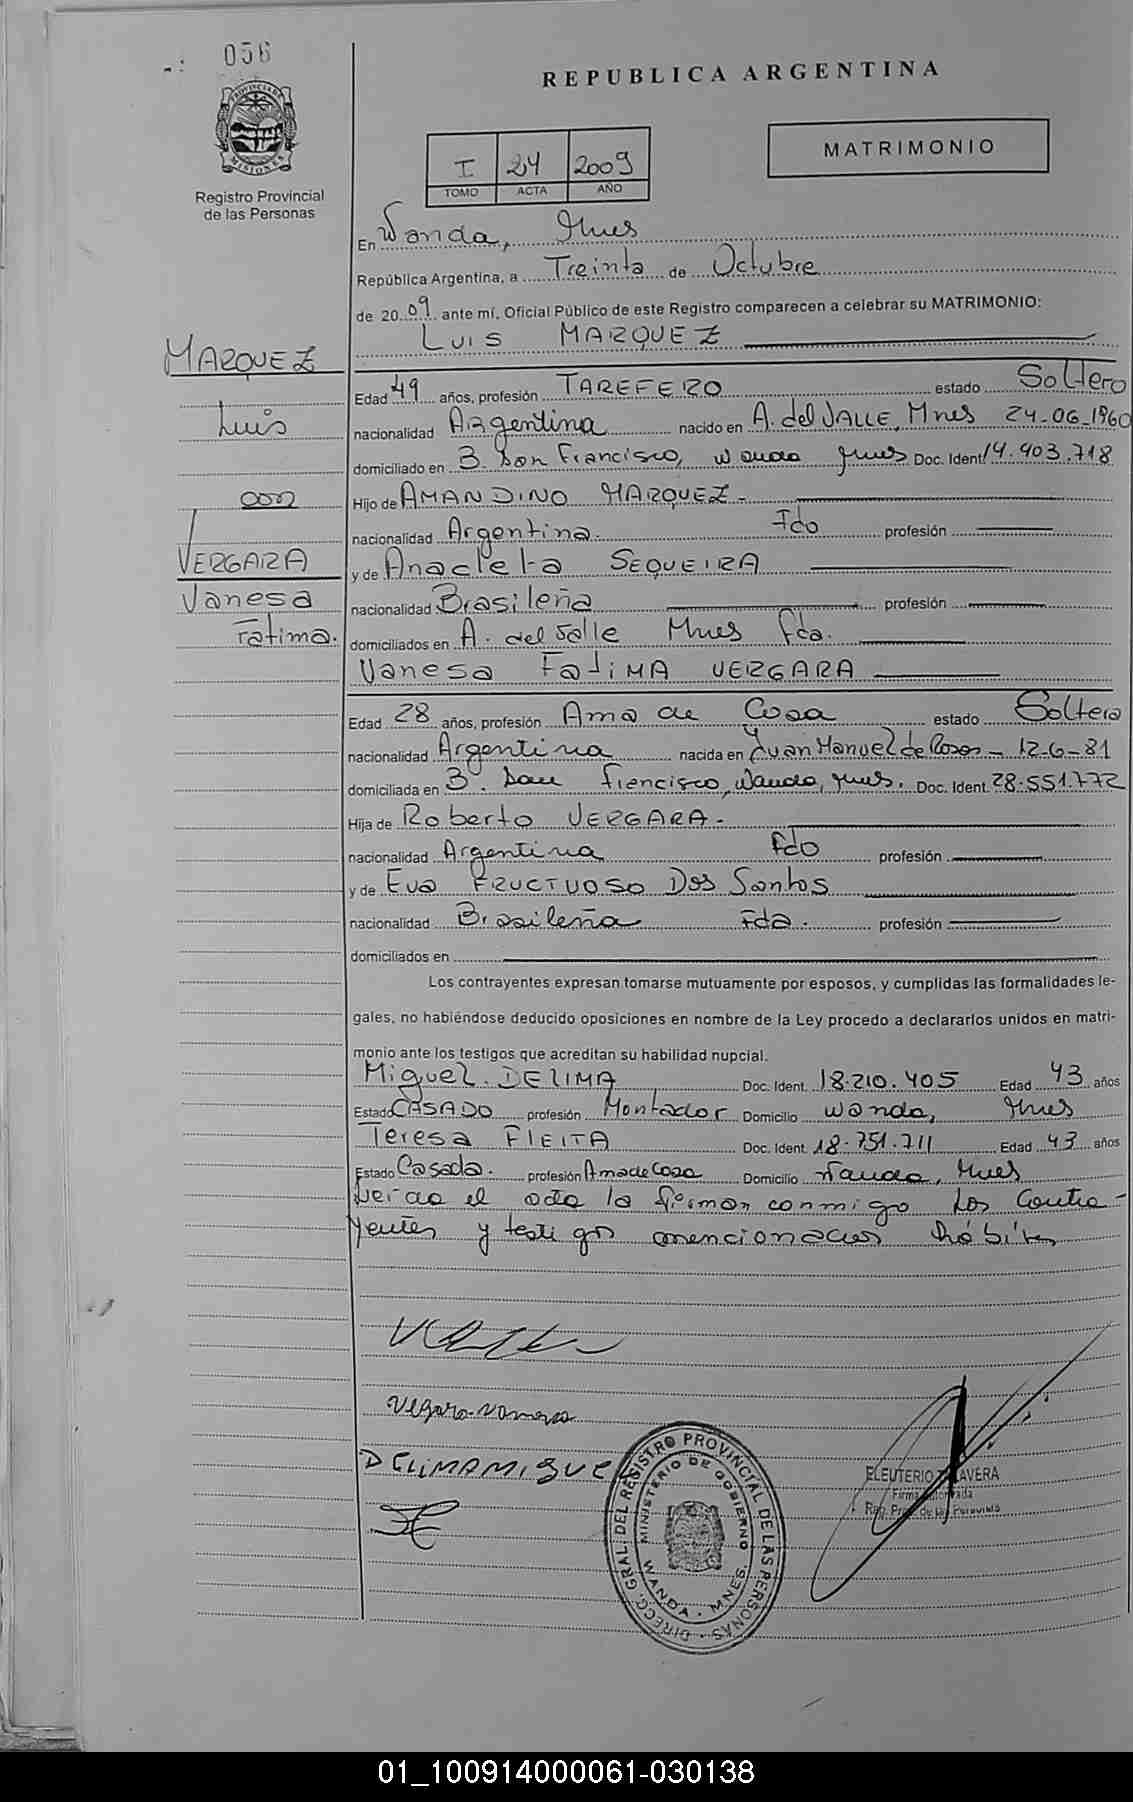 056
PROVINCIA DE
MISIONES
Registro Provincial
de las Personas
REPUBLICA ARGENTINA
I 24 2009
TOMO ACTA AÑO
MATRIMONIO
En Wanda, Mnes
República Argentina, a Treinta de Octubre
de 2009 ante mí, Oficial Público de este Registro comparecen a celebrar su MATRIMONIO:
Luis MARQUEZ
MARQUEZ
Luis
con
VERGARA
Vanesa
Fatima.
Edad 49 años, profesión TAREFERO estado Soltero
nacionalidad Argentina nacido en A. del VALLE, Mnes 24-06-1960
domiciliado en B. Don Francisco, Wanda Mnes Doc. Ident. 14.403.718
Hijo de AMANDINO MARQUEZ-
nacionalidad Argentina. Fdo profesión
y de Anacleta SEQUEIRA
nacionalidad Brasileña profesión
domiciliados en A. del Valle Mnes fda.
Vanesa FatiMA VERGARA
Edad 28 años, profesión Ama de Casa estado Soltera
nacionalidad Argentina nacida en Juan Manuel de Rosas - 12-6-81
domiciliada en B. San Francisco, Wanda, Mnes. Doc. Ident. 28.551.772
Hija de Roberto VERGARA-
nacionalidad Argentina Fdo profesión
y de Eva FRUCTUOSO Dos Santos
nacionalidad Brasileña Fda. profesión
domiciliados en
Los contrayentes expresan tomarse mutuamente por esposos, y cumplidas las formalidades le-
gales, no habiéndose deducido oposiciones en nombre de la Ley procedo a declararlos unidos en matri-
monio ante los testigos que acreditan su habilidad nupcial.
Miguel DELIMA Doc. Ident. 18.210.405 Edad 43 años
Estado CASADO profesión Montador Domicilio Wanda, Mnes
Teresa FLEITA Doc. Ident. 18.751.711 Edad 43 años
Estado Casada. profesión Ama de Casa Domicilio Wanda, Mnes
Leida el acta la firman conmigo los Contra-
yentes y testigos mencionados hábiles
Vegara Vanesa
DELIMA MIGUEL
DIRECC. GRAL. DEL REGISTRO PROVINCIAL DE LAS PERSONAS
MINISTERIO DE GOBIERNO
WANDA - MNES.
ELEUTERIO TALAVERA
Firma Autorizada
Reg. Prov. de las Personas
01_100914000061-030138